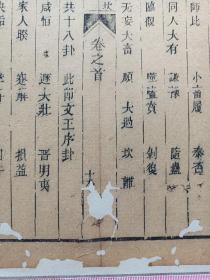 師比 小畜履 泰否
同人大有 謙豫 隨蠱
臨觀 噬嗑賁 剝復
无妄大畜 頤 大過 坎 離
卷之首
共十八卦 此節文王序卦
咸恒 遯大壯 晉明夷
家人睽 蹇解 損益